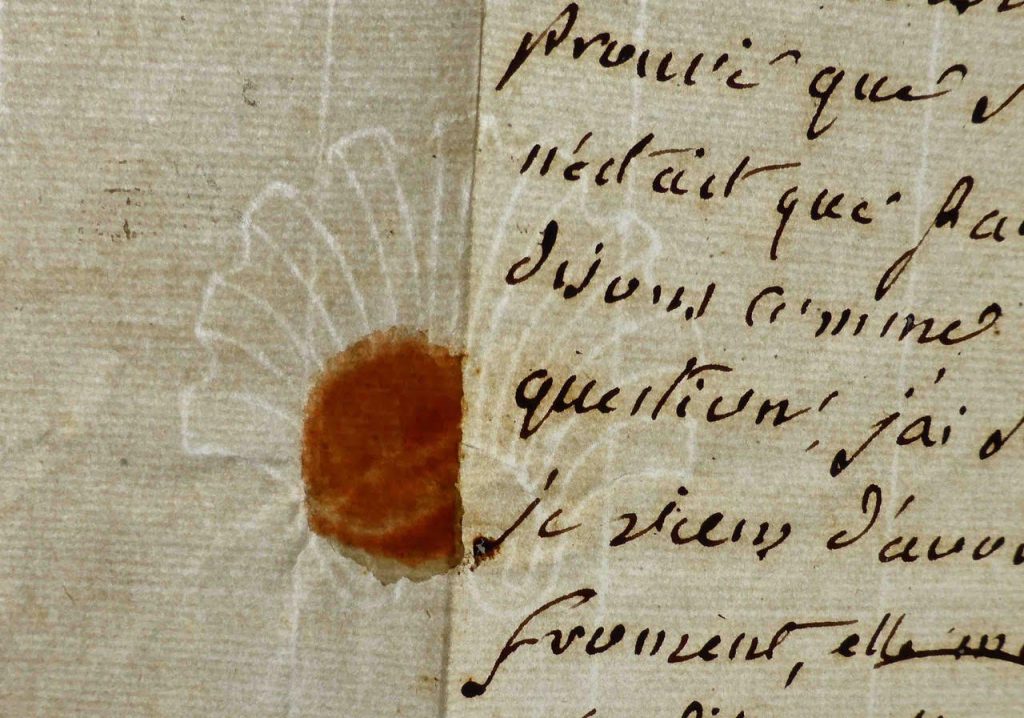 prouvé que
n'était que
disons comme
question, j'ai
je viens d'avoi
froment, elle me